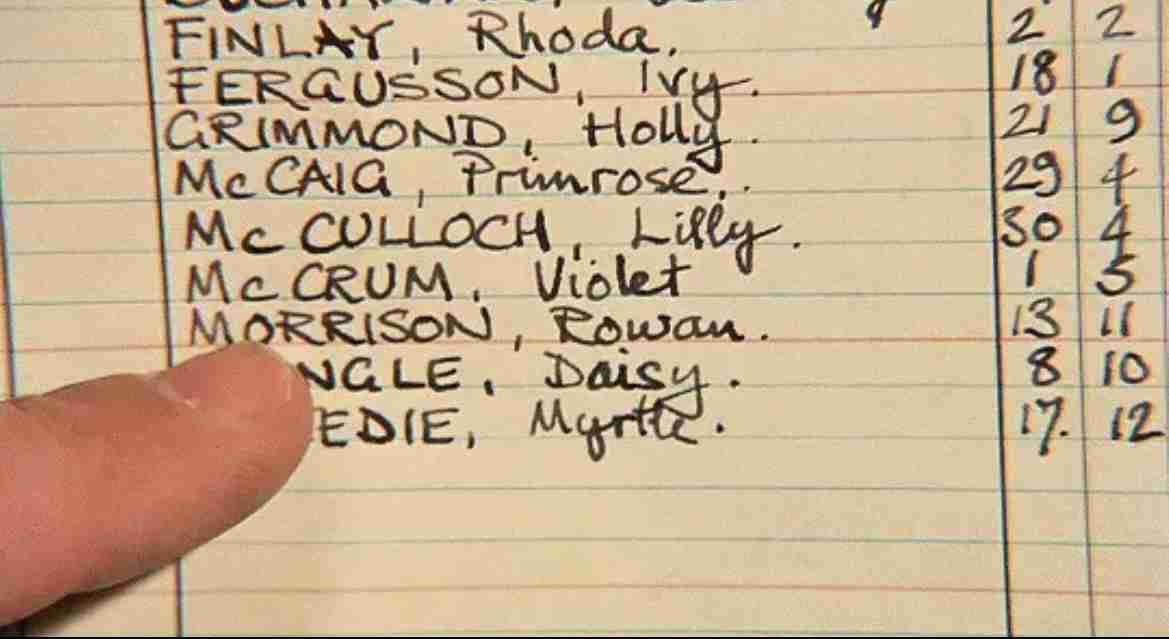 FINLAY, Rhoda. 2 2
FERGUSSON, Ivy. 18 1
GRIMMOND, Holly. 21 9
McCAIG, Primrose. 29 4
McCULLOCH, Lilly. 30 4
McCRUM, Violet 1 5
MORRISON, Rowan. 13 11
NGLE, Daisy. 8 10
EDIE, Myrtle. 17. 12